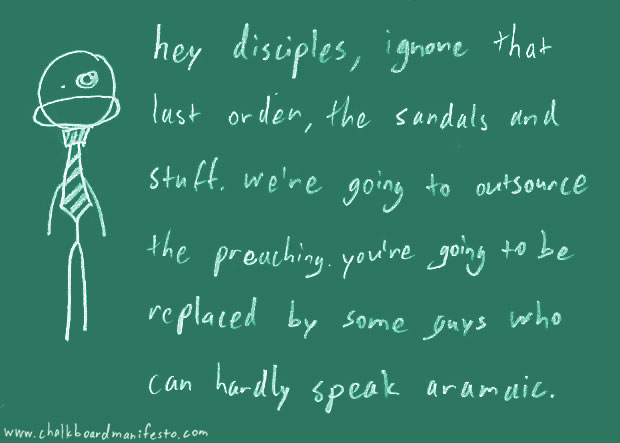 hey disciples, ignore that
last order, the sandals and
stuff. we're going to outsource
the preaching. you're going to be
replaced by some guys who
can hardly speak aramaic.
www.chalkboardmanifesto.com